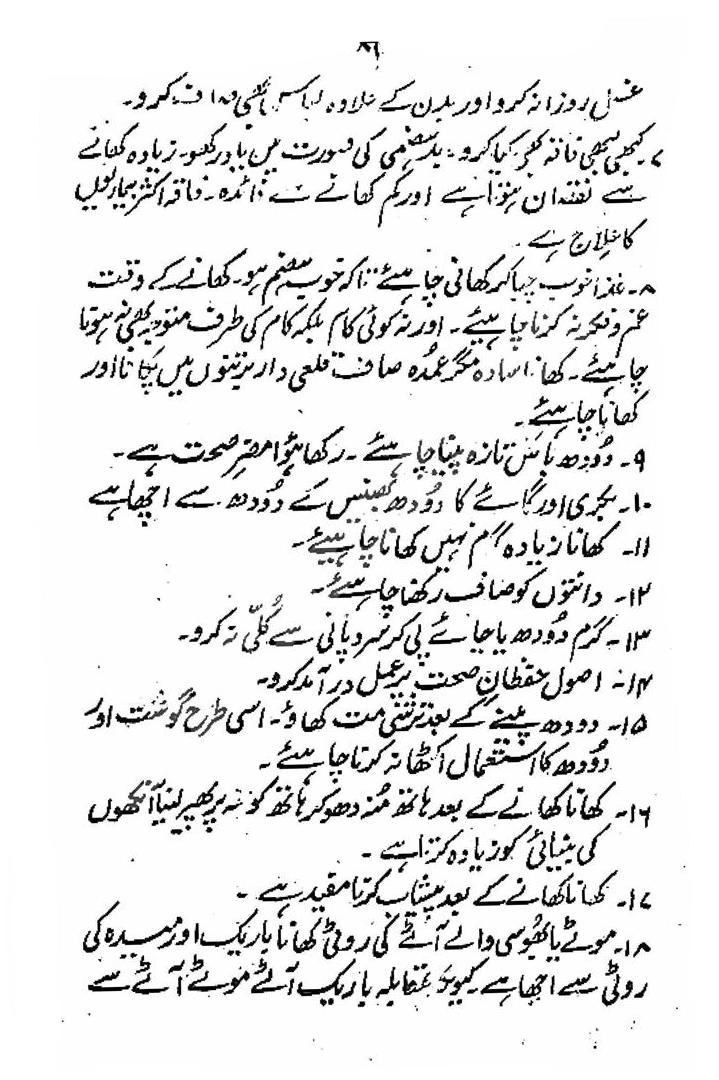 ۸۶
غسل روزانہ کرو اور بدن کے علاوہ لباس بھی صاف کرو۔
۷۔ کبھی کبھی فاقہ بھی کیا کرو۔ بدہضمی کی صورت میں یاد رکھو۔ زیادہ کھانے
سے نقصان ہوتا ہے اور کم کھانے سے فائدہ۔ فاقہ اکثر بیماریوں
کا علاج ہے۔
۸۔ غذا خوب چبا کر کھانی چاہیئے تاکہ خوب ہضم ہو۔ کھانے کے وقت
غم و فکر نہ کرنا چاہیئے۔ اور نہ کوئی کام بلکہ کام کی طرف متوجہ بھی نہ ہونا
چاہیئے۔ کھانا سادہ مگر عمدہ صاف قلعی دار برتنوں میں پکانا اور
کھانا چاہیئے۔
۹۔ دُودھ تازہ پینا چاہیئے۔ رکھا ہؤا مضرِ صحت ہے۔
۱۰۔ بکری اور گائے کا دُودھ بھینس کے دُودھ سے اچھا ہے
۱۱۔ کھانا زیادہ گرم نہیں کھانا چاہیئے۔
۱۲۔ دانتوں کو صاف رکھنا چاہیئے۔
۱۳۔ گرم دُودھ یا چائے پی کر سرد پانی سے کُلّی نہ کرو۔
۱۴۔ اصول حفظانِ صحت پر عمل درآمد کرو۔
۱۵۔ دودھ پینے کے بعد ترشی مت کھاؤ۔ اسی طرح گوشت اور
دُودھ کا استعمال اکٹھا نہ کرنا چاہیئے۔
۱۶۔ کھانا کھانے کے بعد ہاتھ مُنہ دھو کر ہاتھ کو منہ پر پھیر لینا آنکھوں
کی بینائی کو زیادہ کرتا ہے۔
۱۷۔ کھانا کھانے کے بعد پیشاب کرنا مفید ہے۔
۱۸۔ موٹے یا بھُوسی والے آٹے کی روٹی کھانا باریک اور میدہ کی
روٹی سے اچھا ہے۔ کیونکہ بمقابلہ باریک آٹے موٹے آٹے سے